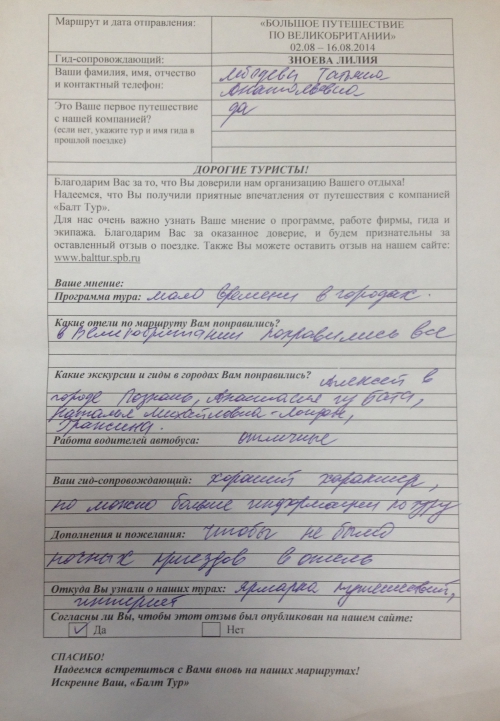 Маршрут и дата отправления: «БОЛЬШОЕ ПУТЕШЕСТВИЕ
ПО ВЕЛИКОБРИТАНИИ»
02.08 – 16.08.2014
Гид-сопровождающий: ЗНОЕВА ЛИЛИЯ
Ваши фамилия, имя, отчество
и контактный телефон:
Анатольевна
Это Ваше первое путешествие
с нашей компанией?
(если нет, укажите тур и имя гида в
прошлой поездке)
да
ДОРОГИЕ ТУРИСТЫ!
Благодарим Вас за то, что Вы доверили нам организацию Вашего отдыха!
Надеемся, что Вы получили приятные впечатления от путешествия с компанией
«Балт Тур».
Для нас очень важно узнать Ваше мнение о программе, работе фирмы, гида и
экипажа. Благодарим Вас за оказанное доверие, и будем признательны за
оставленный отзыв о поездке. Также Вы можете оставить отзыв на нашем сайте:
www.balttur.spb.ru
Ваше мнение:
Программа тура: мало времени в городах.
Какие отели по маршруту Вам понравились?
в Великобритании понравились все
Какие экскурсии и гиды в городах Вам понравились? Алексей в
городе Познань, Анастасия
Наталья Михайловна - Лондон,
Работа водителей автобуса: отличные
Ваш гид-сопровождающий: хороший характер,
но можно больше информации по туру
Дополнения и пожелания: чтобы не было
ночных приездов в отель
Откуда Вы узнали о наших турах: ярмарка путешествий,
интернет
Согласны ли Вы, чтобы этот отзыв был опубликован на нашем сайте:
Да Нет
СПАСИБО!
Надеемся встретиться с Вами вновь на наших маршрутах!
Искренне Ваш, «Балт Тур»